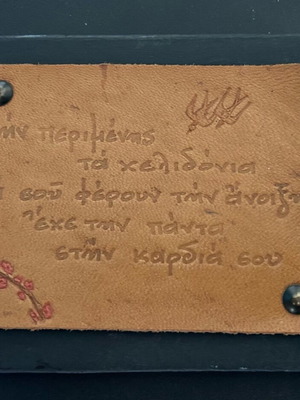 ήν περιμένης
τά χελιδόνια
σοῦ φέρουν τήν ἄνοιξη
Ἔχε την πάντα
στήν καρδιά σου